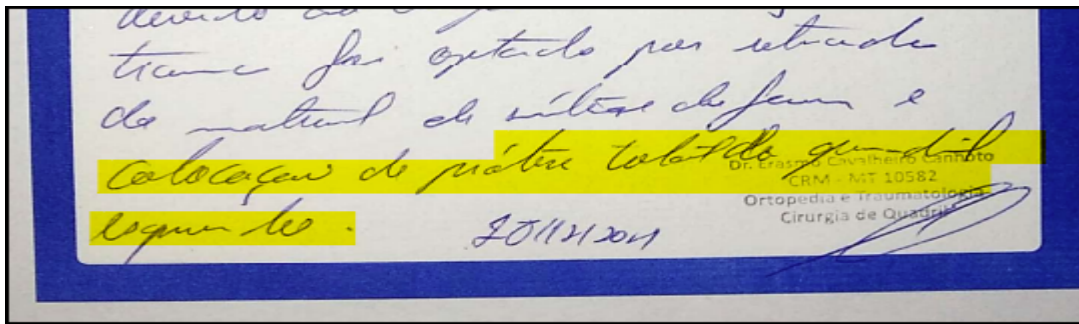 foi optado por retirada
de material de síntese de fêmur e
colocação de prótese total do quadril
esquerdo.
Dr. Erasmo Cavalheiro Canhoto
CRM - MT 10582
Ortopedia e Traumatologia
Cirurgia de Quadril
20/12/2021